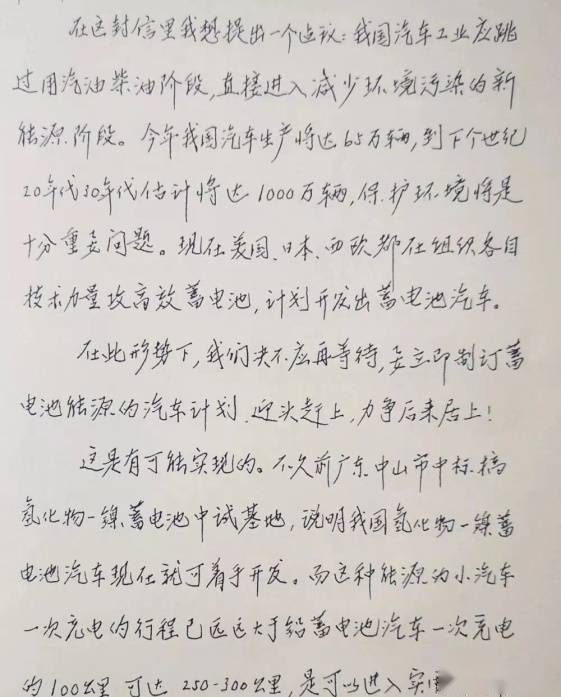 在这封信里我想提出一个建议：我国汽车工业应跳
过用汽油柴油阶段，直接进入减少环境污染的新
能源阶段。今年我国汽车生产将达65万辆，到下个世纪
20年代30年代估计将达1000万辆，保护环境将是
十分重要问题。现在美国、日本、西欧都在组织各自
技术力量攻高效蓄电池，计划开发出蓄电池汽车。
在此形势下，我们决不应再等待，要立即制订蓄
电池能源的汽车计划，迎头赶上，力争后来居上！
这是有可能实现的。不久前广东中山市中标搞
氢化物—镍蓄电池中试基地，说明我国氢化物—镍蓄
电池汽车现在就可着手开发。而这种能源的小汽车
一次充电的行程已远远大于铅蓄电池汽车一次充电
的100公里，可达250-300公里，是可以进入实